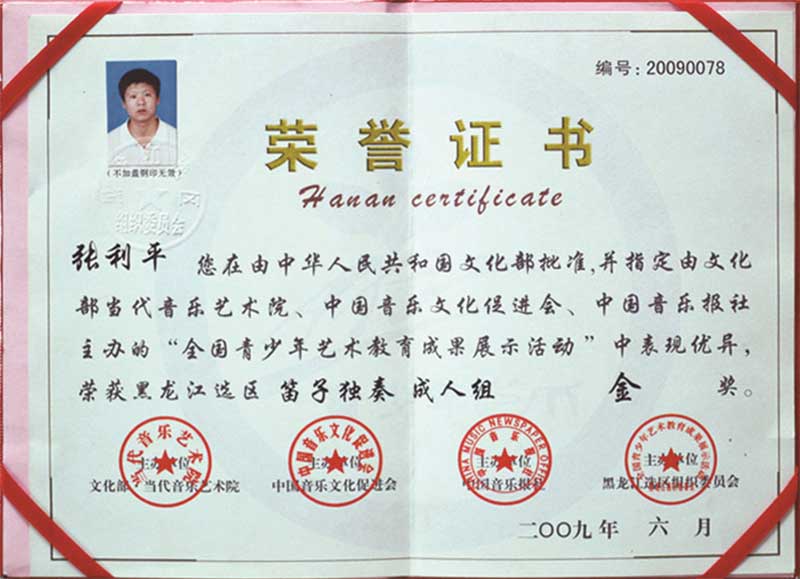 编号：20090078
荣誉证书
Hanan certificate
（不加盖钢印无效）
组织委员会
张利平 您在由中华人民共和国文化部批准，并指定由文化
部当代音乐艺术院、中国音乐文化促进会、中国音乐报社
主办的“全国青少年艺术教育成果展示活动”中表现优异，
荣获黑龙江选区 笛子独奏 成人组 金 奖。
当代音乐艺术院
中国音乐文化促进会
CHINA MUSIC NEWSPAPER OFFICE
中国音乐报社
主办单位 主办单位 主办单位 主办单位
文化部 当代音乐艺术院 中国音乐文化促进会 中国音乐报社 黑龙江选区组织委员会
二〇〇九年 六月